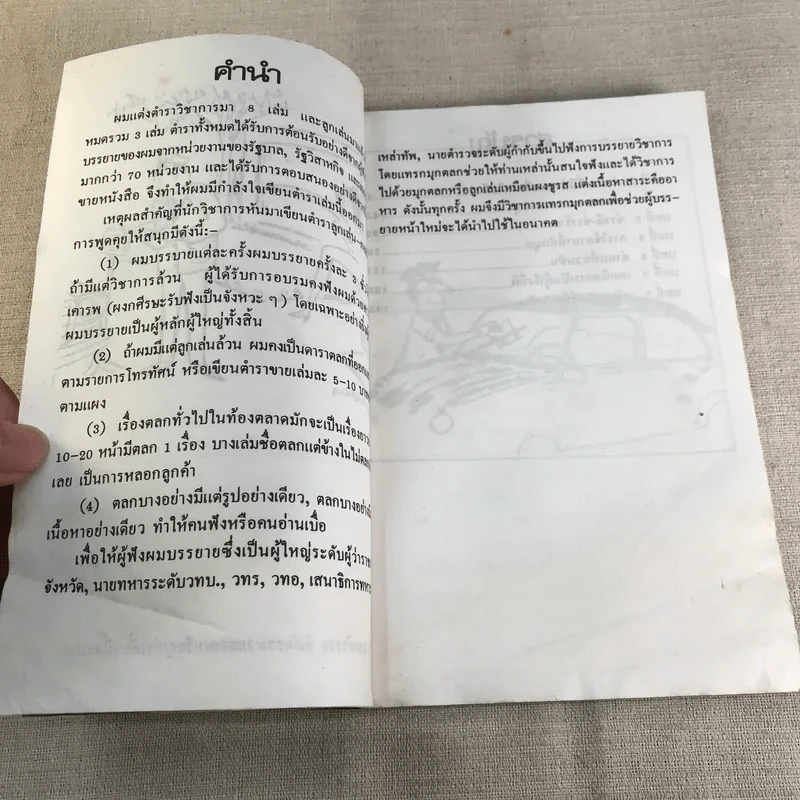 คำนำ
ผมแต่งตำราวิชาการมา 8 เล่ม และลูกเล่นมาแล้ว
หมดรวม 3 เล่ม ตำราทั้งหมดได้รับการต้อนรับอย่างดีจาก
บรรยายของผมจากหน่วยงานของรัฐบาล, รัฐวิสาหกิจ
มากกว่า 70 หน่วยงาน และได้รับการตอบสนองอย่างดี
ขายหนังสือ จึงทำให้ผมมีกำลังใจเขียนตำราเล่มนี้ออกมา
เหตุผลสำคัญที่นักวิชาการหันมาเขียนตำราลูกเล่น
การพูดคุยให้สนุกมีดังนี้:–
(1) ผมบรรบายแต่ละครั้งผมบรรยายครั้งละ 3
ถ้ามีแต่วิชาการล้วน ผู้ได้รับการอบรมคงฟังผมด้วย
เคารพ (ผงกศีรษะรับฟังเป็นจังหวะ ๆ) โดยเฉพาะอย่างยิ่ง
ผมบรรยายเป็นผู้หลักผู้ใหญ่ทั้งสิ้น
(2) ถ้าผมมีแต่ลูกเล่นล้วน ผมคงเป็นดาราตลกที่ออก
ตามรายการโทรทัศน์ หรือเขียนตำราขายเล่มละ 5–10
ตามแผง
(3) เรื่องตลกทั่วไปในท้องตลาดมักจะเป็นเรื่อง
10–20 หน้ามีตลก 1 เรื่อง บางเล่มชื่อตลกแต่ข้างในไม่ตลก
เลย เป็นการหลอกลูกค้า
(4) ตลกบางอย่างมีแต่รูปอย่างเดียว, ตลกบางอย่าง
เนื้อหาอย่างเดียว ทำให้คนฟังหรือคนอ่านเบื่อ
เพื่อให้ผู้ฟังผมบรรยายซึ่งเป็นผู้ใหญ่ระดับผู้ว่า
จังหวัด, นายทหารระดับวทบ., วทร, วทอ, เสนาธิการทหาร
เหล่าทัพ, นายตำรวจระดับผู้กำกับขึ้นไปฟังการบรรยายวิชาการ
โดยแทรกมุกตลกช่วยให้ท่านเหล่านั้นสนใจฟังและได้วิชาการ
ไปด้วยมุกตลกหรือลูกเล่นเหมือนผงชูรส แต่งเนื้อหาสาระคืออา
หาร ดังนั้นทุกครั้ง ผมจึงมีวิชาการแทรกมุกตลกเพื่อช่วยผู้บรร–
ยายหน้าใหม่จะได้นำไปใช้ในอนาคต